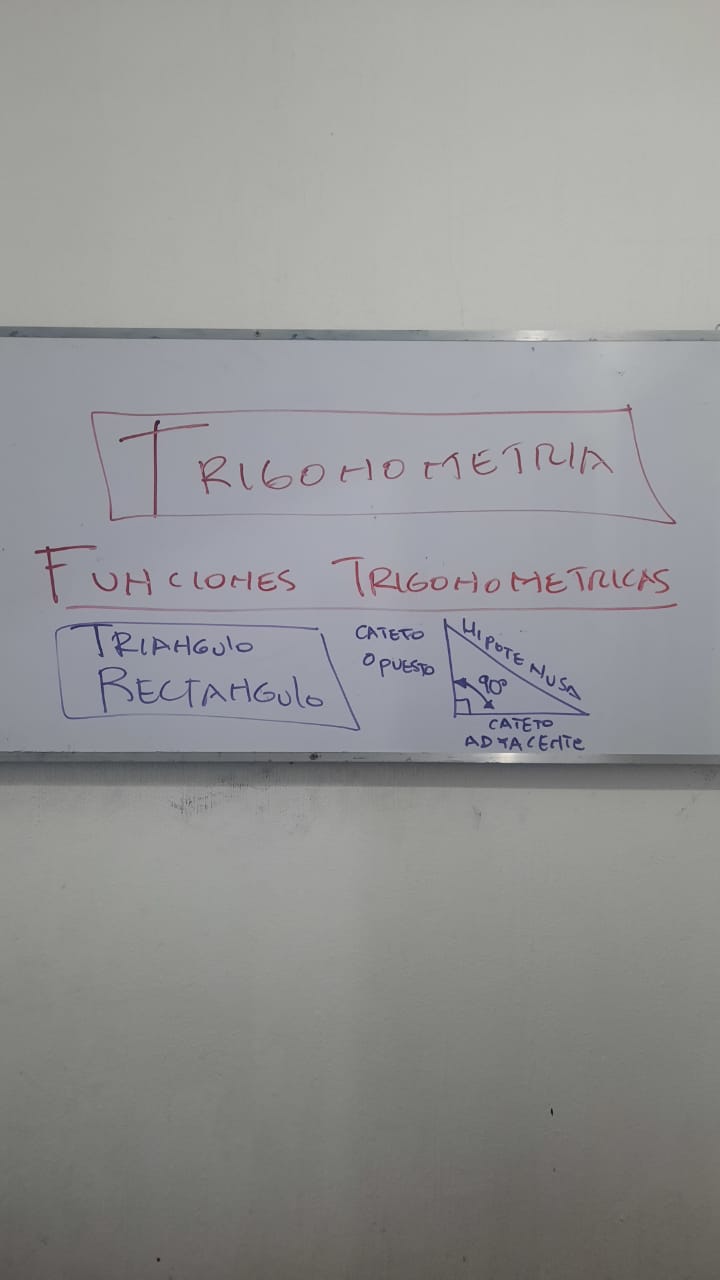 TRIGONOMETRIA
FUNCIONES TRIGONOMETRICAS
TRIANGULO
RECTANGULO
CATETO
OPUESTO
HIPOTENUSA
90°
CATETO
ADYACENTE